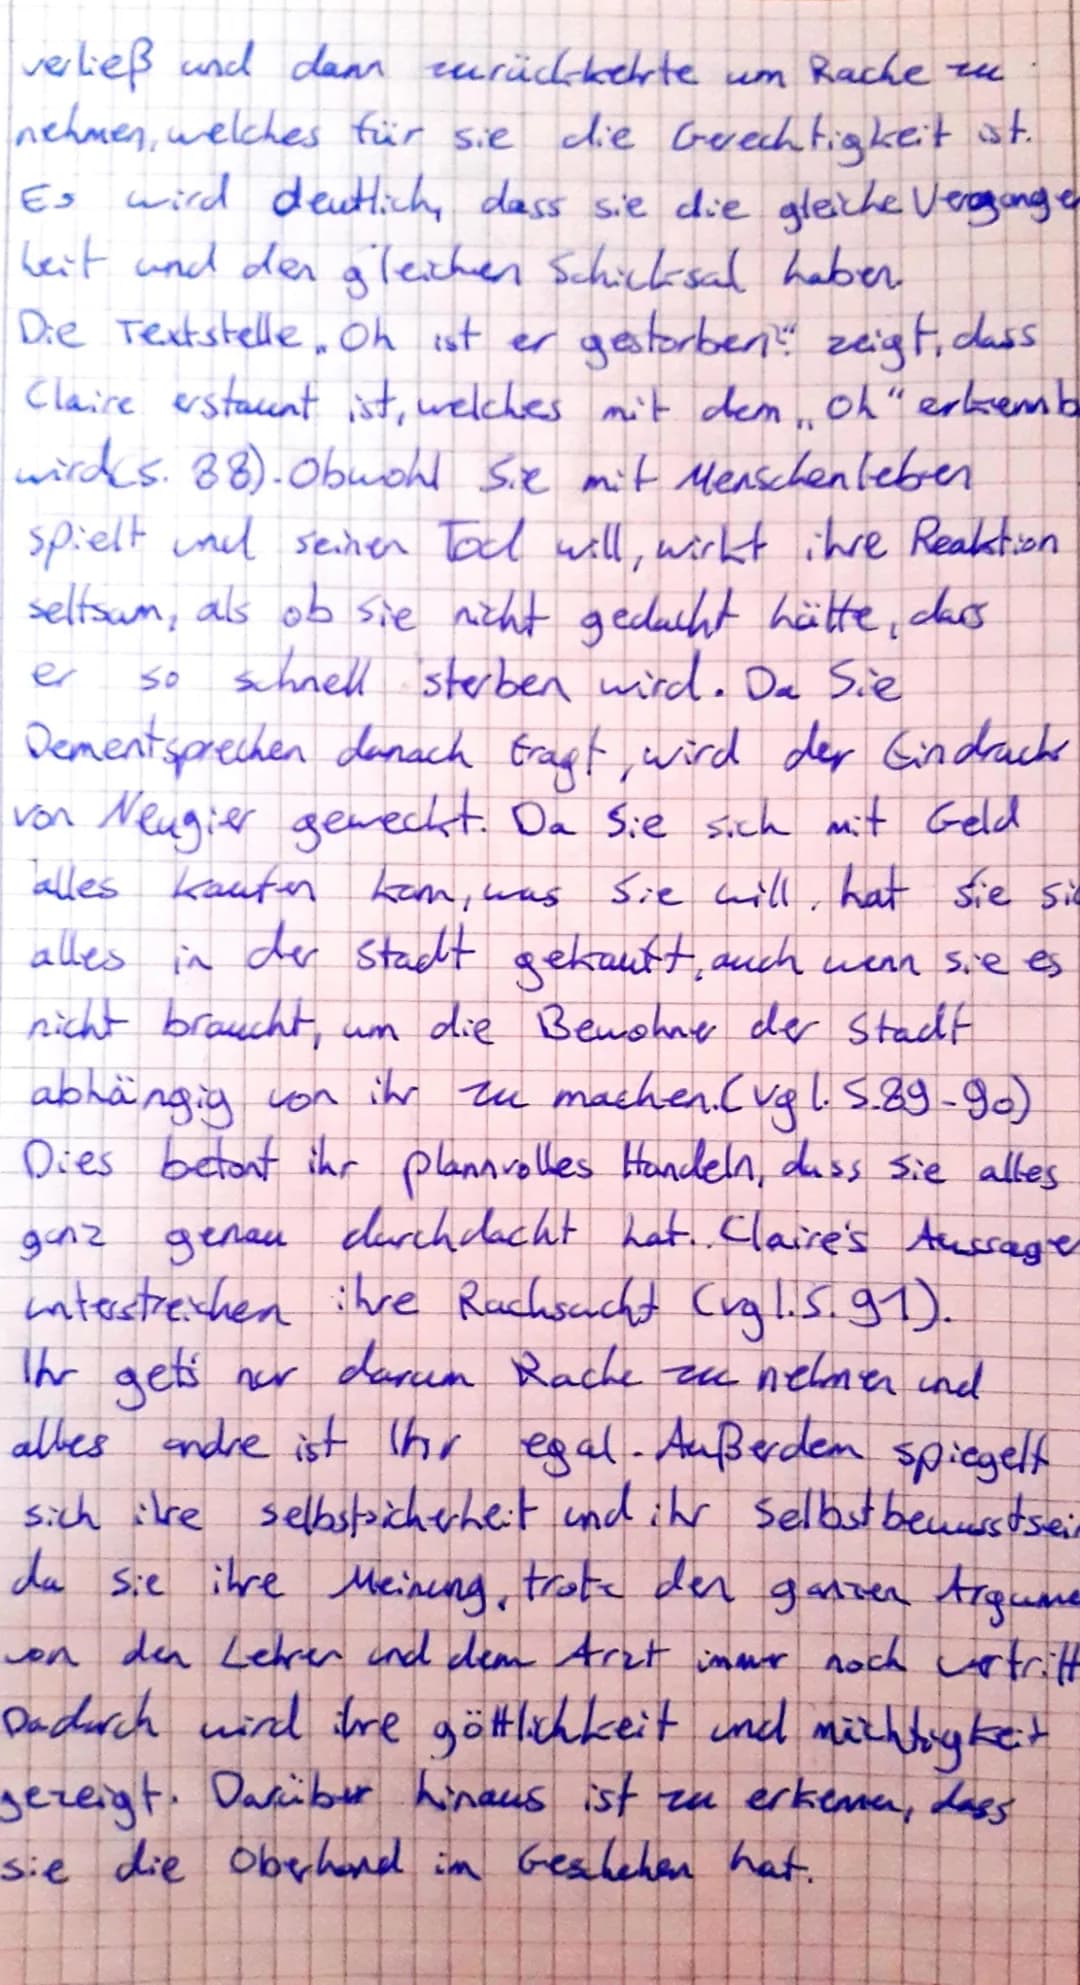 verließ und dann zurückkehrte um Rache zu
nehmen, welches für sie die Gerechtigkeit ist.
Es wird deutlich, dass sie die gleiche Vergangen
heit und den gleichen Schicksal haben.
Die Textstelle „Oh ist er gestorben?“ zeigt, dass
Claire erstaunt ist, welches mit dem „Oh“ erkennb
wird(S. 88). Obwohl Sie mit Menschenleben
spielt und seinen Tod will, wirkt ihre Reaktion
seltsam, als ob sie nicht gedacht hätte, dass
er so schnell sterben wird. Da Sie
Dementsprechen danach fragt, wird der Eindruck
von Neugier geweckt. Da Sie sich mit Geld
alles kaufen kann, was Sie will, hat sie sic
alles in der Stadt gekauft, auch wenn sie es
nicht braucht, um die Bewohner der Stadt
abhängig von ihr zu machen.(vgl. S.89-90)
Dies betont ihr plannvolles Handeln, dass sie alles
ganz genau durchdacht hat. Claire's Aussagen
unterstreichen ihre Rachsucht (vgl. S. 91).
Ihr gets nur darum Rache zu nehmen und
alles andre ist Ihr egal. Außerdem spiegelt
sich ihre selbstsicherheit und ihr Selbstbewusstsein
da sie ihre Meinung, trotz den ganzen Argume
von den Lehrer und dem Arzt immer noch vertritt
Dadurch wird ihre göttlichkeit und mächtigkeit
gezeigt. Darüber hinaus ist zu erkennen, dass
sie die Oberhand im Geschehen hat.